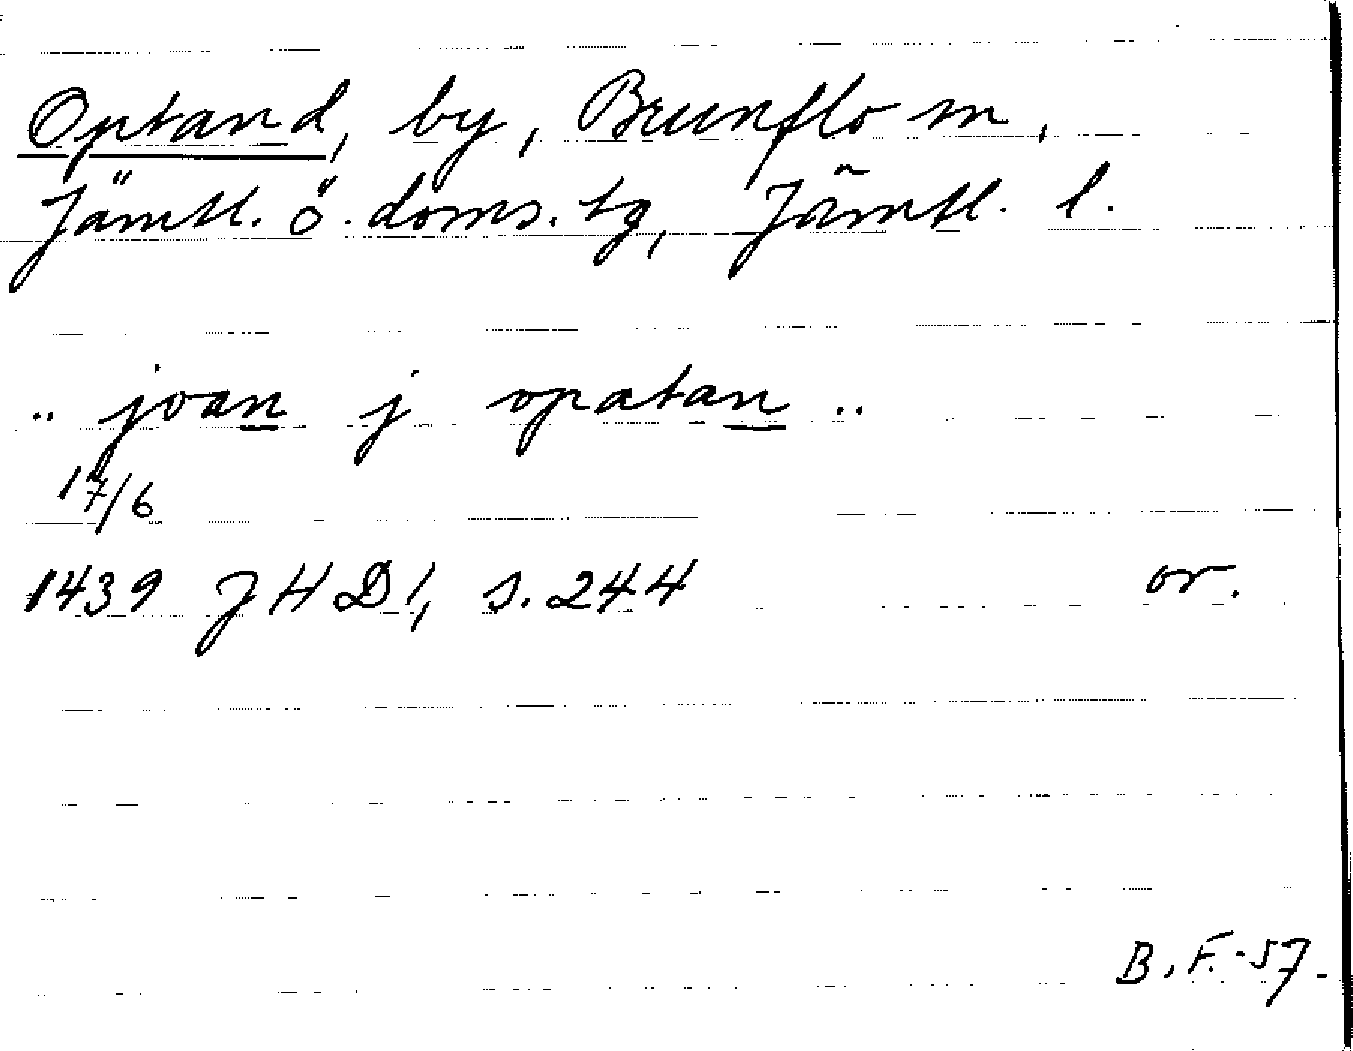 Optand, by, Brunflo sn,
Jämtl. ö. doms. tg, Jämtl. l.
.. joan j opatan ..
17/6
1439 JHD 1, s. 244 or.
B. F. -57.